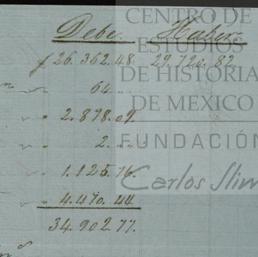 Debe. Haber.
$ 26.362.48. 29.724.82
64
" 2.878.09.
" 2.
" 1.125.76.
" 4.470.44
34.902.77.
CENTRO DE
ESTUDIOS
DE HISTORIA
DE MEXICO
FUNDACIÓN
Carlos Slim